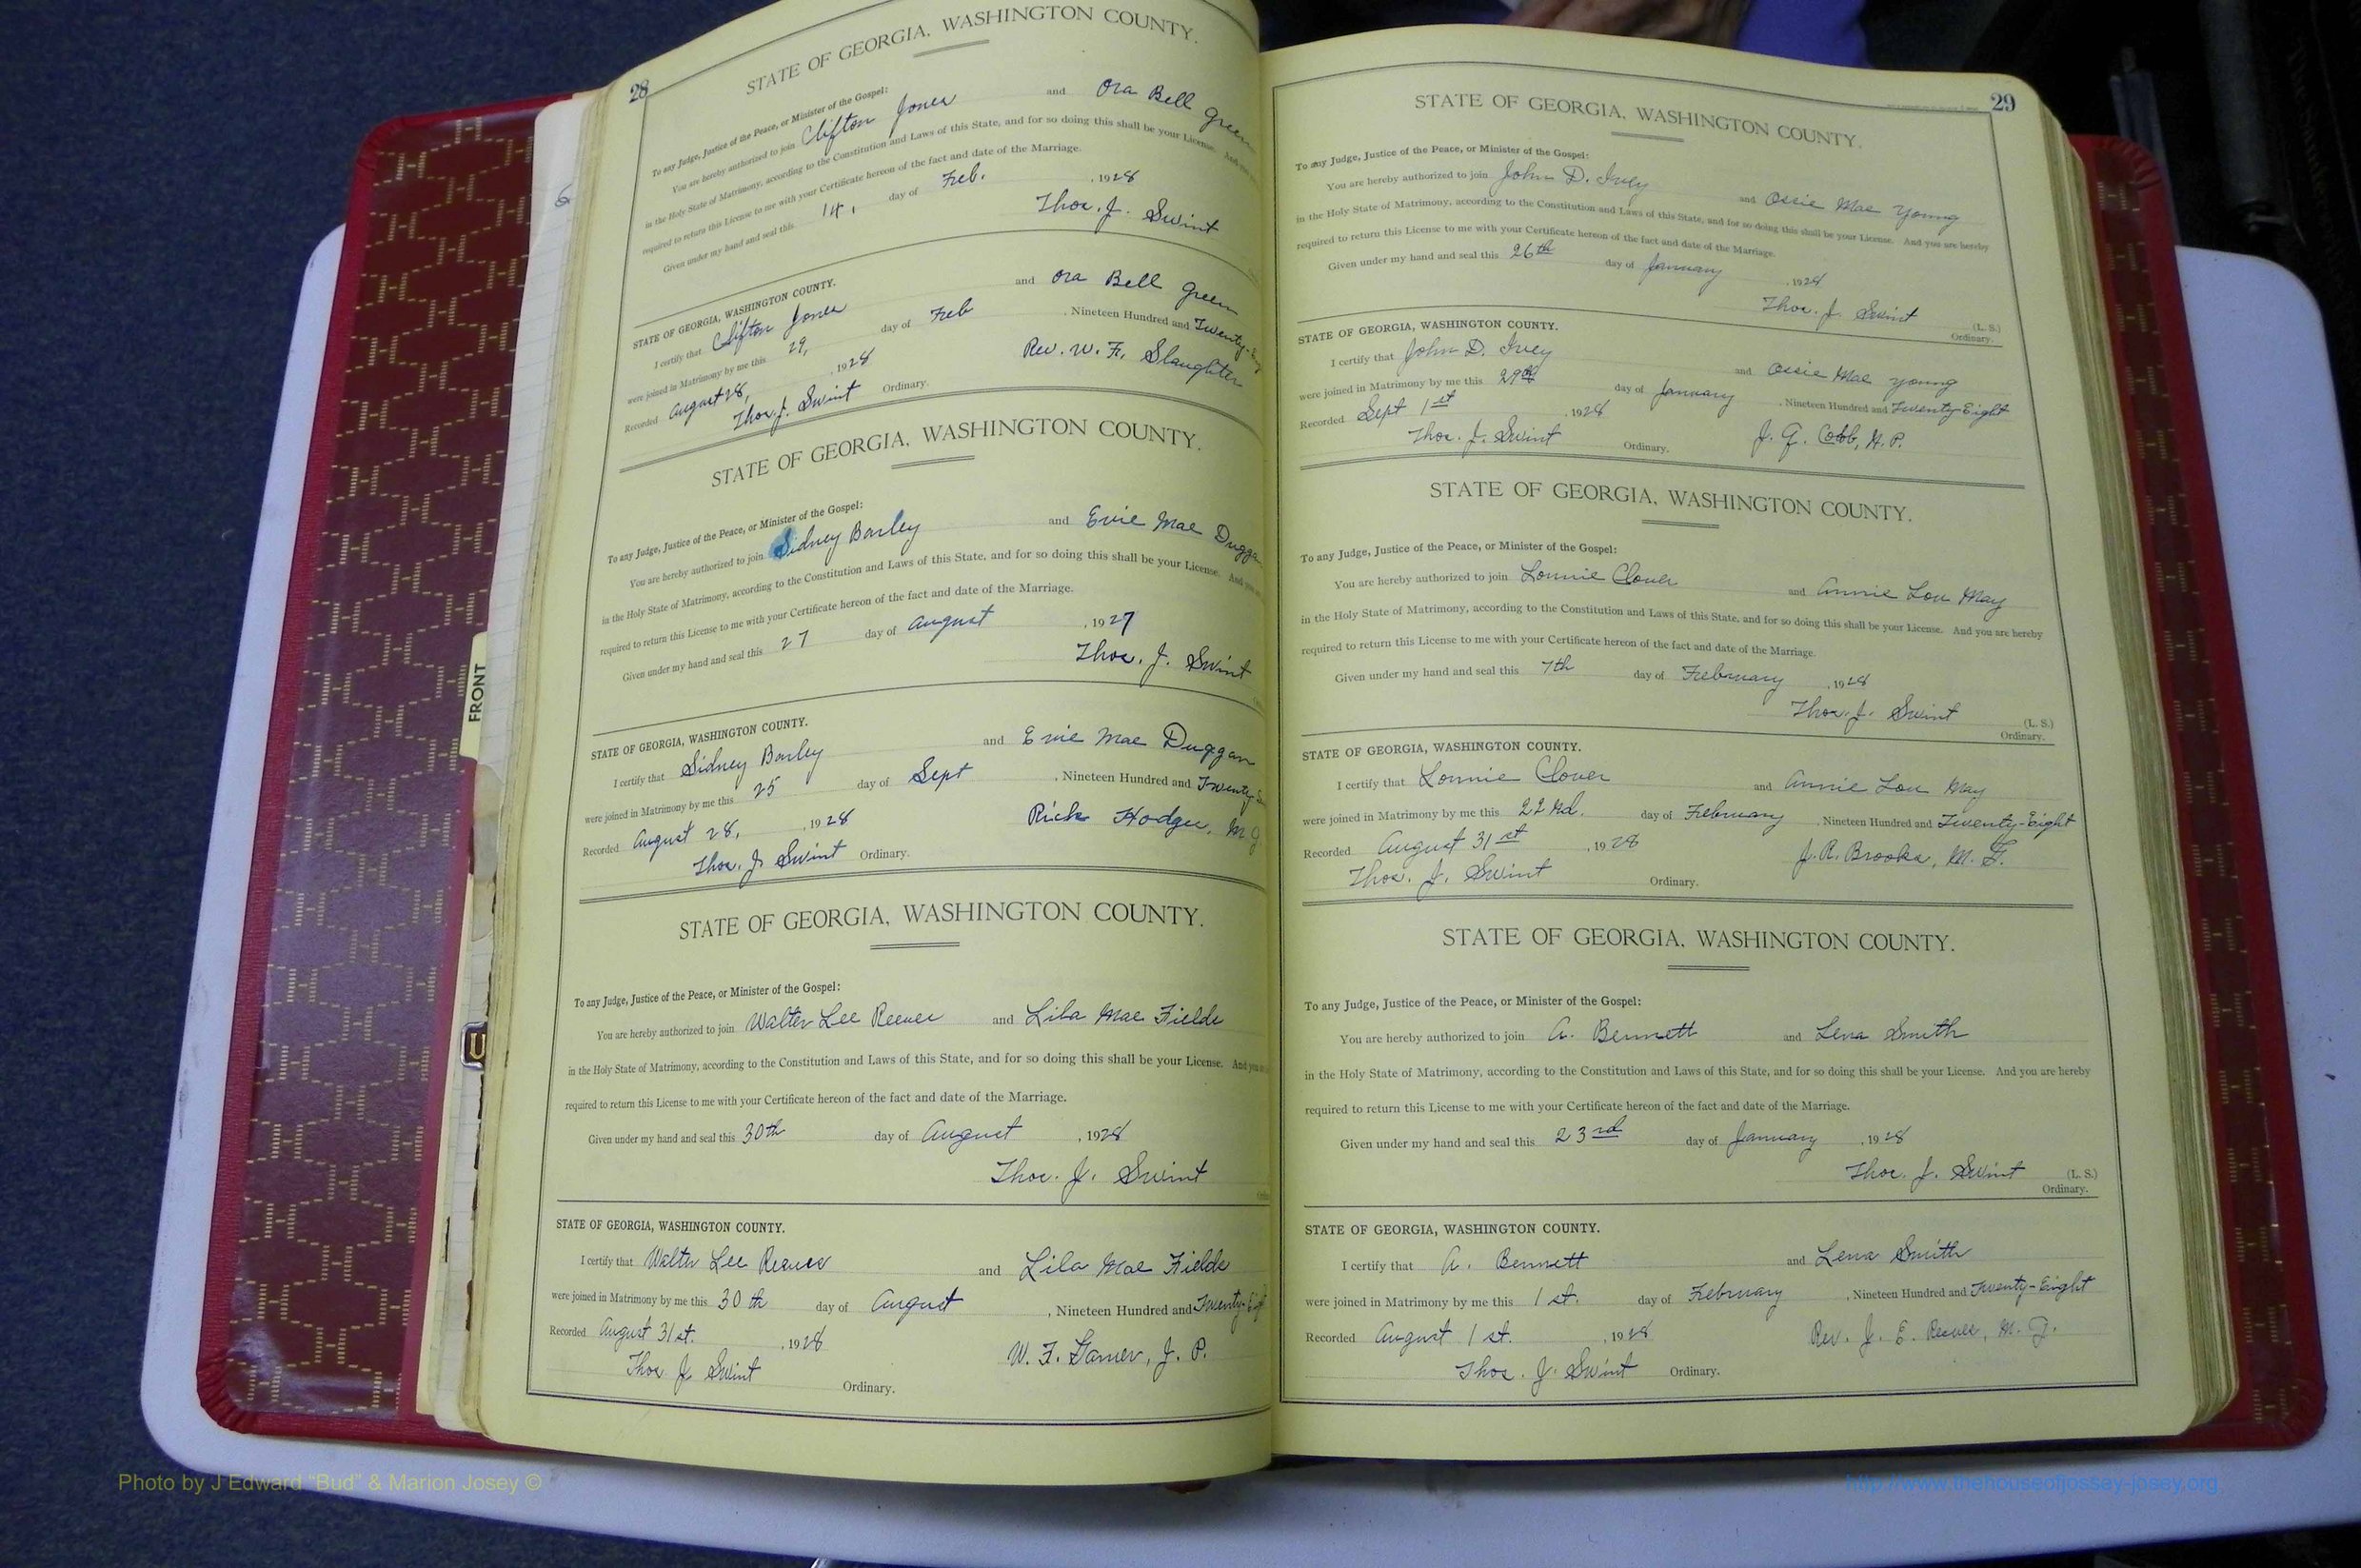 28
STATE OF GEORGIA, WASHINGTON COUNTY.
To any Judge, Justice of the Peace, or Minister of the Gospel:
You are hereby authorized to join Clifton Jones and Ora Bell Green
in the Holy State of Matrimony, according to the Constitution and Laws of this State, and for so doing this shall be your License. And you
required to return this License to me with your Certificate hereon of the fact and date of the Marriage.
Given under my hand and seal this 14, day of Feb. , 1928
Thos. J. Swint
STATE OF GEORGIA, WASHINGTON COUNTY.
I certify that Clifton Jones and Ora Bell Green
were joined in Matrimony by me this 29, day of Feb , Nineteen Hundred and Twenty-
Recorded August 28, , 1928 Rev. W. F. Slaughter
Thos. J. Swint Ordinary.
STATE OF GEORGIA, WASHINGTON COUNTY.
To any Judge, Justice of the Peace, or Minister of the Gospel:
You are hereby authorized to join Sidney Barley and Evie Mae Duggan
in the Holy State of Matrimony, according to the Constitution and Laws of this State, and for so doing this shall be your License. And you
required to return this License to me with your Certificate hereon of the fact and date of the Marriage.
Given under my hand and seal this 27 day of August , 1927
Thos. J. Swint
STATE OF GEORGIA, WASHINGTON COUNTY.
I certify that Sidney Barley and Evie Mae Duggan
were joined in Matrimony by me this 25 day of Sept , Nineteen Hundred and Twenty-
Recorded August 28, , 1928 Rick Hodges, M G
Thos. J. Swint Ordinary.
STATE OF GEORGIA, WASHINGTON COUNTY.
To any Judge, Justice of the Peace, or Minister of the Gospel:
You are hereby authorized to join Walter Lee Reeves and Lila Mae Fields
in the Holy State of Matrimony, according to the Constitution and Laws of this State, and for so doing this shall be your License. And you
required to return this License to me with your Certificate hereon of the fact and date of the Marriage.
Given under my hand and seal this 30th day of August , 1928
Thos. J. Swint
STATE OF GEORGIA, WASHINGTON COUNTY.
I certify that Walter Lee Reeves and Lila Mae Fields
were joined in Matrimony by me this 30th day of August , Nineteen Hundred and Twenty-Eig
Recorded August 31st. , 1928 W. F. Garner, J. P.
Thos J Swint Ordinary.
29
STATE OF GEORGIA, WASHINGTON COUNTY.
To any Judge, Justice of the Peace, or Minister of the Gospel:
You are hereby authorized to join John D. Ivey and Ossie Mae Young
in the Holy State of Matrimony, according to the Constitution and Laws of this State, and for so doing this shall be your License. And you are hereby
required to return this License to me with your Certificate hereon of the fact and date of the Marriage.
Given under my hand and seal this 26th day of January , 1928
Thos. J. Swint (L. S.)
Ordinary.
STATE OF GEORGIA, WASHINGTON COUNTY.
I certify that John D. Ivey and Ossie Mae Young
were joined in Matrimony by me this 29th day of January , Nineteen Hundred and Twenty-Eight
Recorded Sept 1st , 1928 J. G. Cobb, N. P.
Thos. J. Swint Ordinary.
STATE OF GEORGIA, WASHINGTON COUNTY.
To any Judge, Justice of the Peace, or Minister of the Gospel:
You are hereby authorized to join Lonnie Clover and Annie Lou May
in the Holy State of Matrimony, according to the Constitution and Laws of this State, and for so doing this shall be your License. And you are hereby
required to return this License to me with your Certificate hereon of the fact and date of the Marriage.
Given under my hand and seal this 7th day of February , 1928
Thos. J. Swint (L. S.)
Ordinary.
STATE OF GEORGIA, WASHINGTON COUNTY.
I certify that Lonnie Clover and Annie Lou May
were joined in Matrimony by me this 22nd. day of February , Nineteen Hundred and Twenty-Eight
Recorded August 31st , 1928 J. R. Brooks, M. G.
Thos. J. Swint Ordinary.
STATE OF GEORGIA, WASHINGTON COUNTY.
To any Judge, Justice of the Peace, or Minister of the Gospel:
You are hereby authorized to join A. Bennett and Lena Smith
in the Holy State of Matrimony, according to the Constitution and Laws of this State, and for so doing this shall be your License. And you are hereby
required to return this License to me with your Certificate hereon of the fact and date of the Marriage.
Given under my hand and seal this 23rd day of January , 1928
Thos. J. Swint (L. S.)
Ordinary.
STATE OF GEORGIA, WASHINGTON COUNTY.
I certify that A. Bennett and Lena Smith
were joined in Matrimony by me this 1st. day of February , Nineteen Hundred and Twenty-Eight
Recorded August 1st. , 1928 Rev. J. E. Reeves, M. G.
Thos. J. Swint Ordinary.
FRONT
Photo by J Edward “Bud” & Marion Josey ©
http://www.thehouseofjossey-josey.org